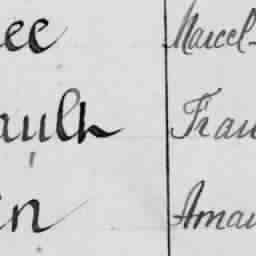 ee Marcel-
aulh Fran
in Aman